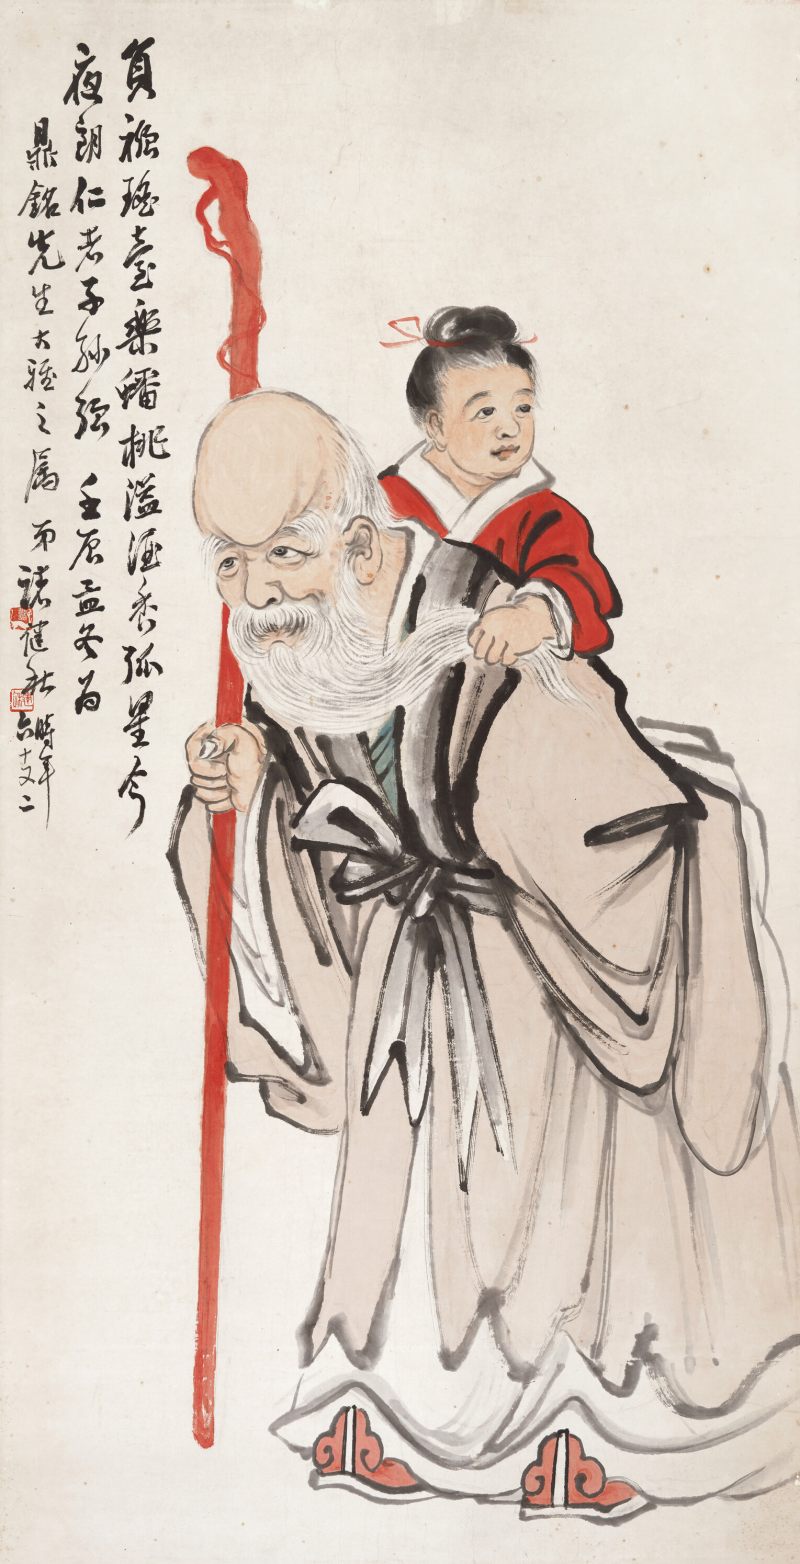 負襁瑤臺樂蟠桃溢酒香弧星今
夜朗仁者子孫強 壬辰孟冬為
鼎銘先生大雅之屬 弟諸健秋時年
六十又二